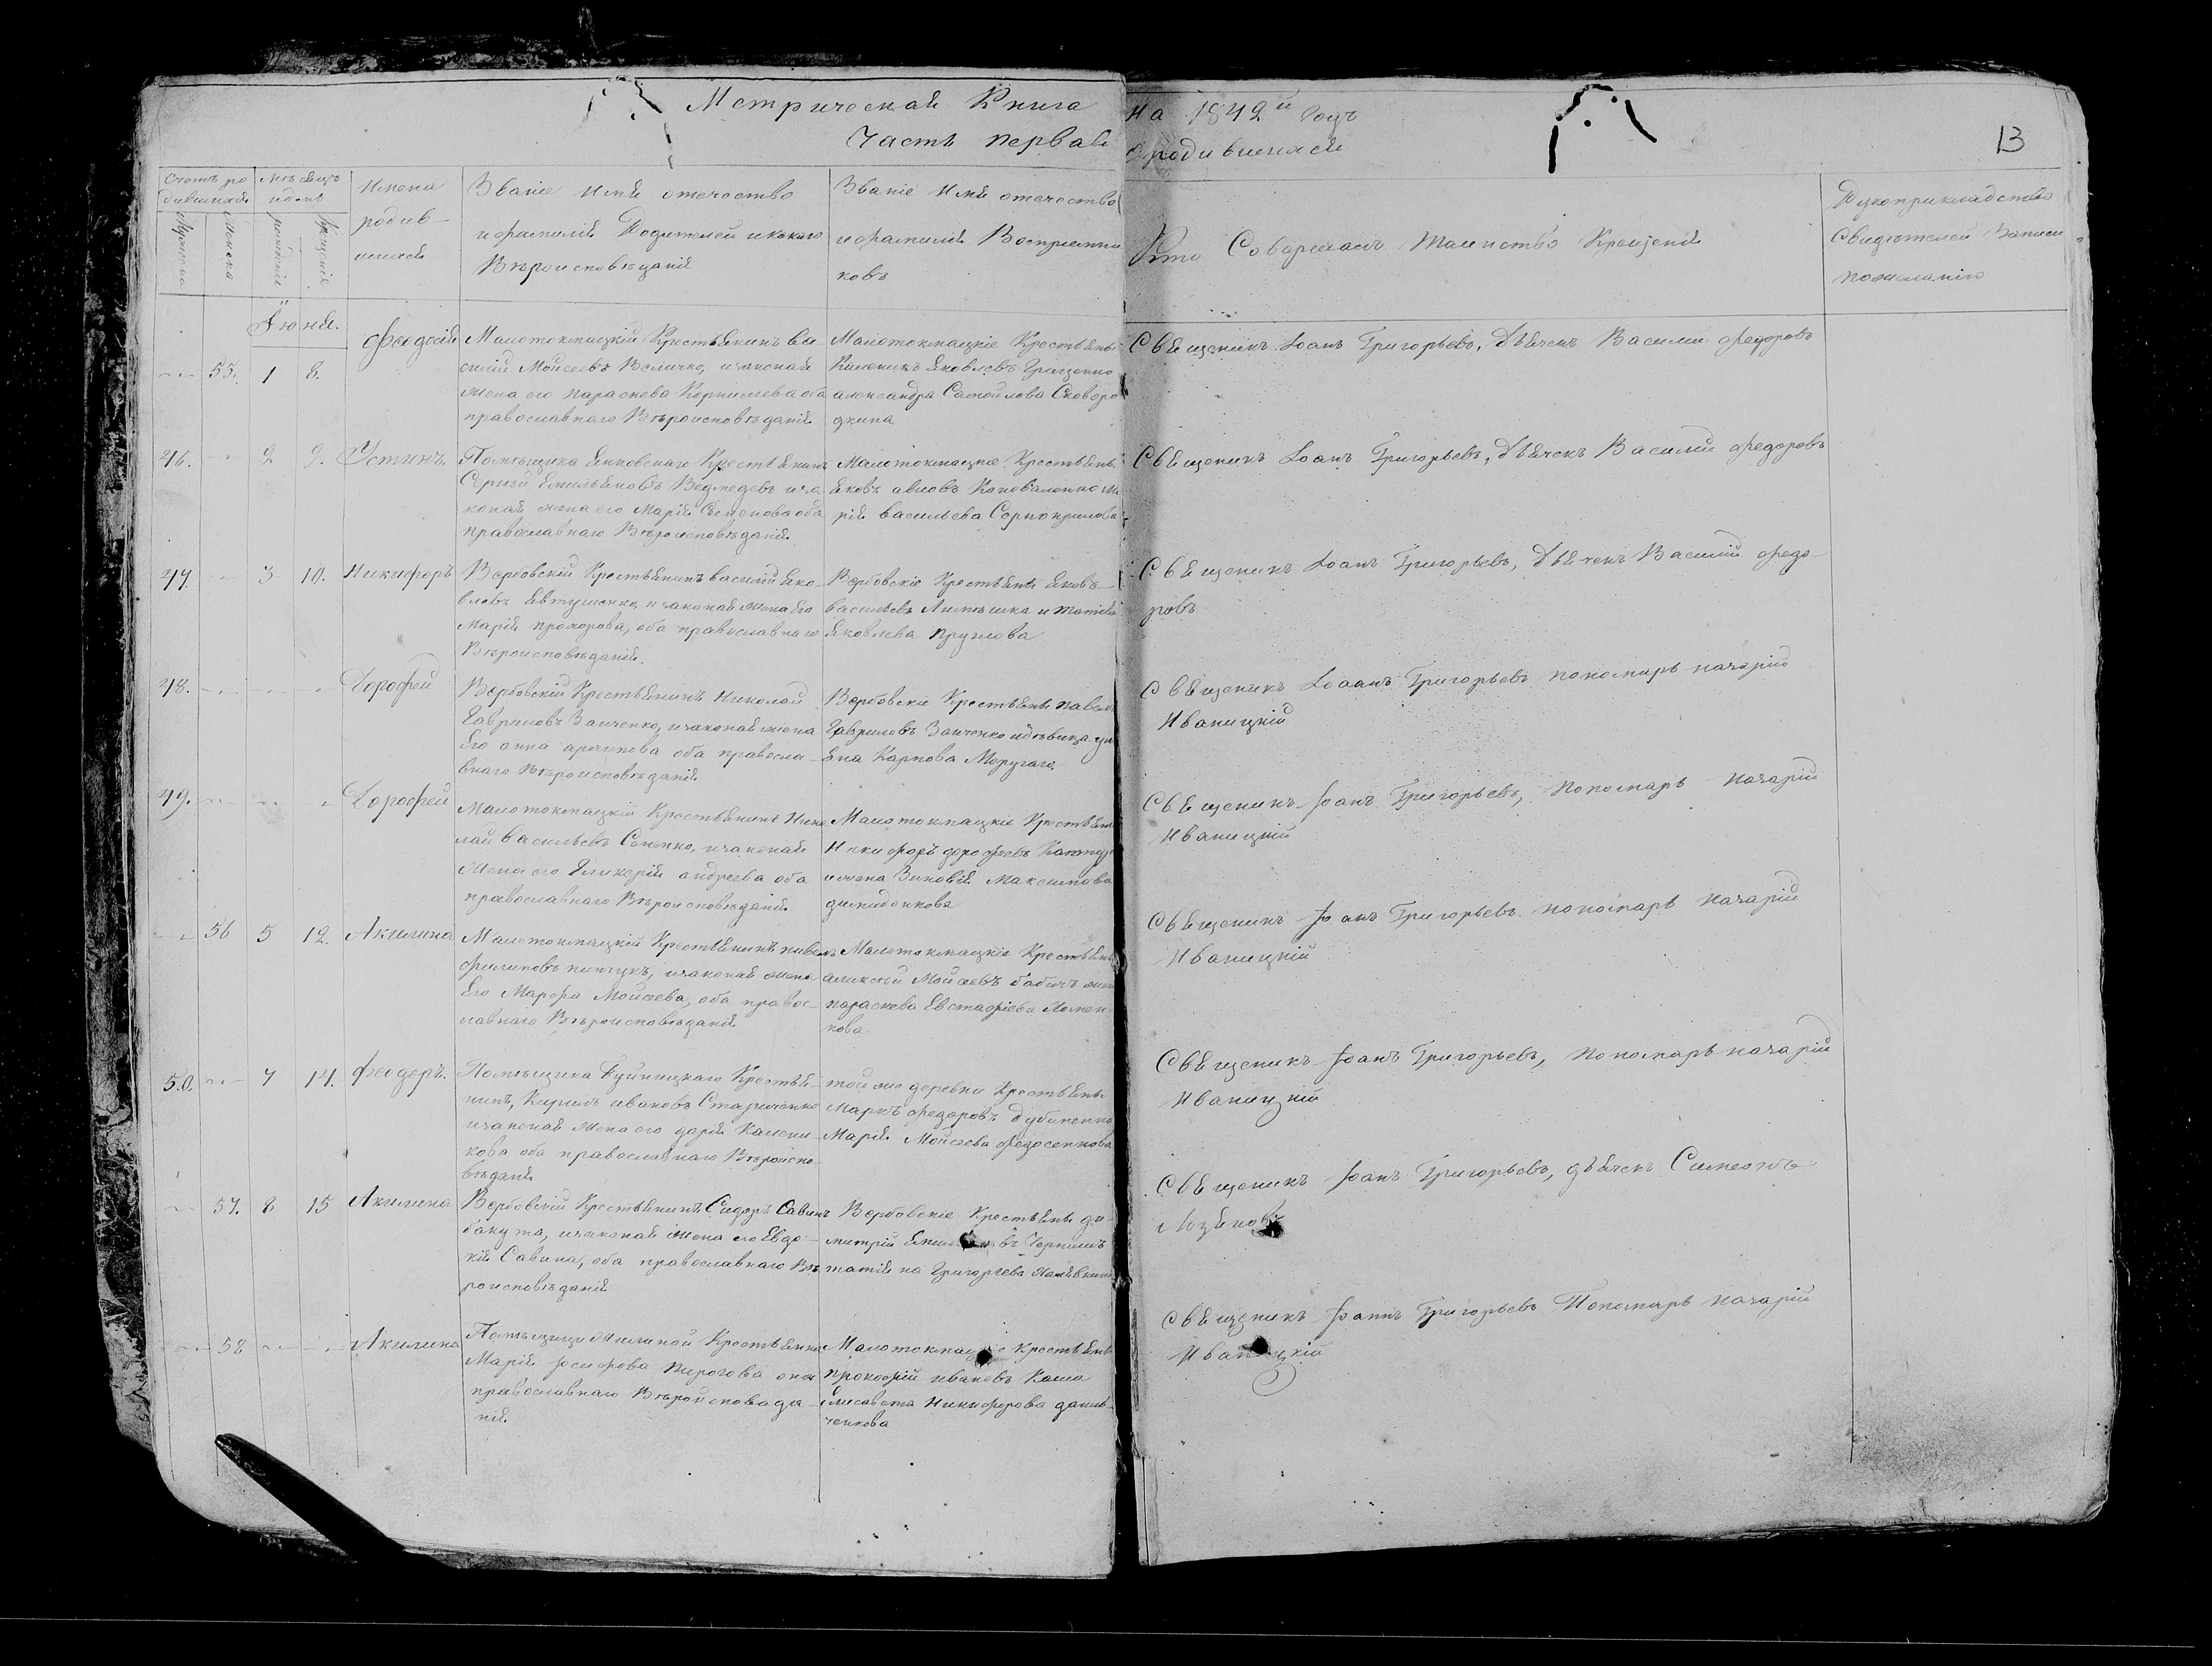 Метрическая Книга на 1842й Годъ
Часть первая о родившихся
13
Счотъ ро
дившихся
Мужеска
женска
Мѣсяцъ
и день
рожденія
Крещенія
Имена
родив-
шихся
Званіе Имя отечество
и фамилія Родителей и какого
Вѣроисповѣданія
Званіе Имя отечество
и фамилія Воспріемни
ковъ
Кто Совершалъ Таинство Крещенія
Рукоприкладство
Свидѣтелей Записи
пожеланію
Іюня.
55. 1 8.
Феодосія
Малотокмацкій Крестьянинъ Ва-
силій Мойсеевъ Величко, изаконая
жена его параскева Корнилева оба
православнаго Вѣроисповѣданія
Малотокмацкіе Крестьяне
Каленикъ Яковлевъ Грищенко
александра Самойлова Сковоро
дкина
Священикъ Іоанъ Григорьевъ, Дьячекъ Василій федоровъ
46. 2 9.
Устинъ
Помѣщика Янковскаго Крестьянинъ
Сергѣй Емильяновъ Ведмедевъ иза
коная жена его Марія Семенова оба
православнаго Вѣроисповѣданія
Малотокмацкіе Крестьяне
Яковъ Коноваленко Ма
рія васильева
Священикъ Іоанъ Григорьевъ, Дьячекъ Василій федоровъ
47. 3 10.
Никифоръ
Вербовскій Крестьянинъ василій Яко-
влевъ Евтушенко, изаконая жена Его
Марія прохорова, оба православнаго
Вѣроисповѣданія.
Вербовскіе Крестьяне Яковъ
васильевъ и татіяна
Яковлева Круглова
Священикъ Іоанъ Григорьевъ, Дьячекъ Василій федо-
ровъ
48.
Дорофей
Вербовскій Крестьянинъ Николай
Гавриловъ Заиченко, изаконая жена
Его анна архипова оба правосла-
внаго Вѣроисповѣданія
Вербовскіе Крестьяне павелъ
Гавриловъ Заиченко идѣвица
Карпова
Священикъ Іоаанъ Григорьевъ пономарь назарій
Иваницкій
49.
Дорофей
Малотокмацкій Крестьянинъ Нико
лай васильевъ Сененко, изаконая
жена его Гликерія андреева оба
православнаго Вѣроисповѣданія
Малотокмацкіе Крестьяне
Никифоръ дорофеевъ
ижена Зиновія Максимова
Священикъ Іоанъ Григорьевъ, Пономарь назарій
Иваницкій
56 5 12.
Акилина
Малотокмацкій Крестьянинъ павелъ
филиповъ пинчукъ, изаконая жена
Его Марфа Мойсеева, оба правос-
лавнаго Вѣроисповѣданія
Малотокмацкіе Крестьяне
алексѣй Мойсеевъ бабичъ
параскева Евстафіева
кова
Священикъ Іоанъ Григорьевъ пономарь назарій
Иваницкій
50. 7 14.
Феодоръ.
Помѣщика Буйницкаго Крестья-
нинъ, Кирилъ ивановъ Стариченко
изаконая жена его дарія Калени-
кова оба православнаго Вѣроиспо-
вѣданія
той же деревни Крестьяне
Маркъ федоровъ дубиненко
Марія Мойсеева федосенкова
Священикъ Іоанъ Григорьевъ, Пономарь назарій
Иваницкій
57. 8 15
Акилина
Вербовскій Крестьянинъ Сидоръ Савинъ
бакута, изаконая жена его Евдо-
кія Савина, оба православнаго Вѣ
роисповѣданія
Вербовскіе Крестьяне ди-
митрій
татіяна Григорьева
Священикъ Іоанъ Григорьевъ, дьячекъ Симеонъ
58
Акилина
Помѣщици Крестьянка
Марія Іосифова пирогова она
православнаго Вѣроисповада
нія
Малотокмацкіе крестьяне
прокофій ивановъ Каша
Елисавета Никифорова данил
ченкова
Священикъ Іоанъ Григорьевъ Пономарь назарій
Иваницкій